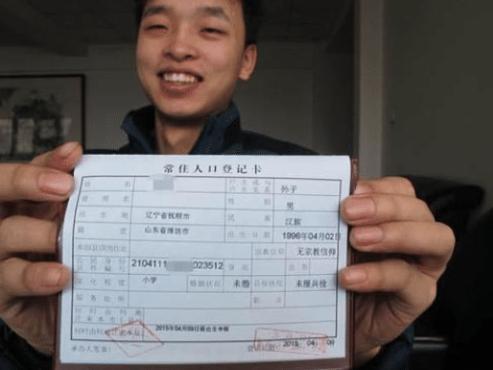 常住人口登记卡
姓名 户主或与户主关系 孙子
曾用名 性别 男
出生地 辽宁省抚顺市 民族 汉族
籍贯 山东省潍坊市 出生日期 1996年04月02日
宗教信仰 无宗教信仰
公民身份证件编号 2104111 023512 身高
文化程度 小学 婚姻状况 未婚 兵役状况 未服兵役
服务处所 职业
2015年04月09日
承办人签章: 2015 04 09